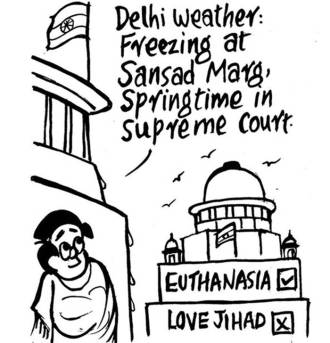 Delhi weather:
Freezing at
Sansad Marg,
Springtime in
Supreme Court.
EUTHANASIA ☑
LOVE JIHAD ☒